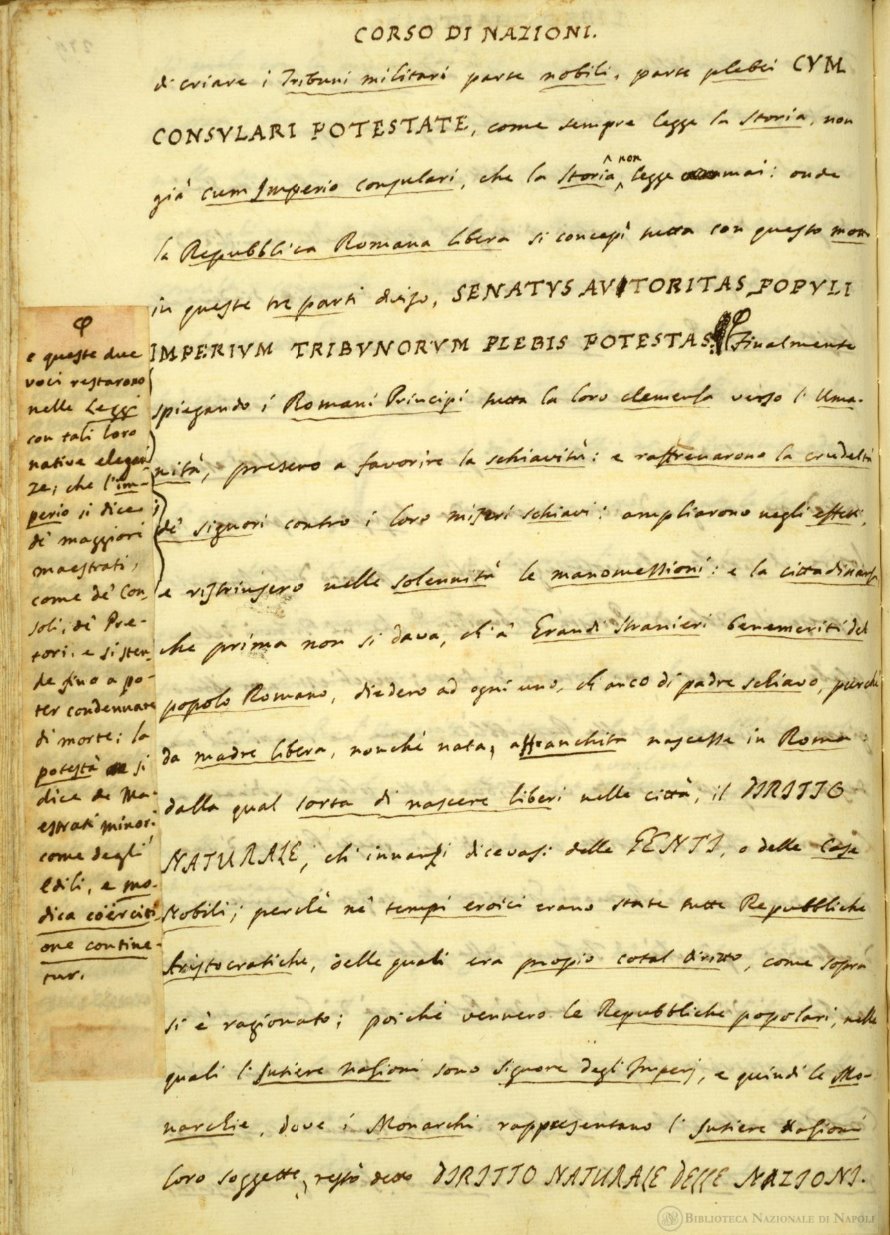 CORSO DI NAZIONI.
di criare i Tribuni militari parte nobili, parte plebei CVM
CONSVLARI POTESTATE, come sempre legge la Storia, non
già cum Imperio consulari, che la Storia non legge mai: onde
la Repubblica Romana libera si concepì tutta con questo motto
in queste tre parti diviso, SENATVS AVTORITAS, POPVLI
IMPERIVM TRIBVNORVM PLEBIS POTESTAS. φ Finalmente
spiegando i Romani Principi tutta la loro clemenza verso l'Uma-
nità, presero a favorire la schiavitù: e raffrenarono la crudeltà
de' signori contro i loro miseri schiavi: ampliarono negli effetti,
e ristrinsero nelle solennità le manomessioni: e la cittadinanza
che prima non si dava, ch'a' Grandi Stranieri benemeriti del
popolo Romano, diedero ad ogni uno, ch'anco di padre schiavo, purchè
da madre libera, nonchè nata, affranchita nascesse in Roma:
dalla qual sorta di nascere liberi nelle città, il DIRITTO
NATURALE, ch'innanzi dicevasi delle GENTI, o delle Case
Nobili; perchè ne' tempi eroici erano state tutte Repubbliche
Aristocratiche, delle quali era propio cotal diritto, come sopra
si è ragionato; poichè vennero le Repubbliche popolari, nelle
quali l'Intiere Nazioni sono Signore degl'Imperj, e quindi le Mo-
narchie, dove i Monarchi rappresentano l'Intiere Nazioni
loro soggette, restò detto DIRITTO NATURALE DELLE NAZIONI.
φ
e queste due
voci restarono
nelle Leggi
con tali loro
native elegan-
ze, che l'im-
perio si dice
de' maggiori
maestrati,
come de' Con-
soli, de' Pre-
tori: e si sten-
de fino a po-
ter condennare
di morte; la
potestà si
dice de' Ma-
estrati minori
come degli
Edili, e mo-
dica coërciti-
one contine-
tur.
BIBLIOTECA NAZIONALE DI NAPOLI